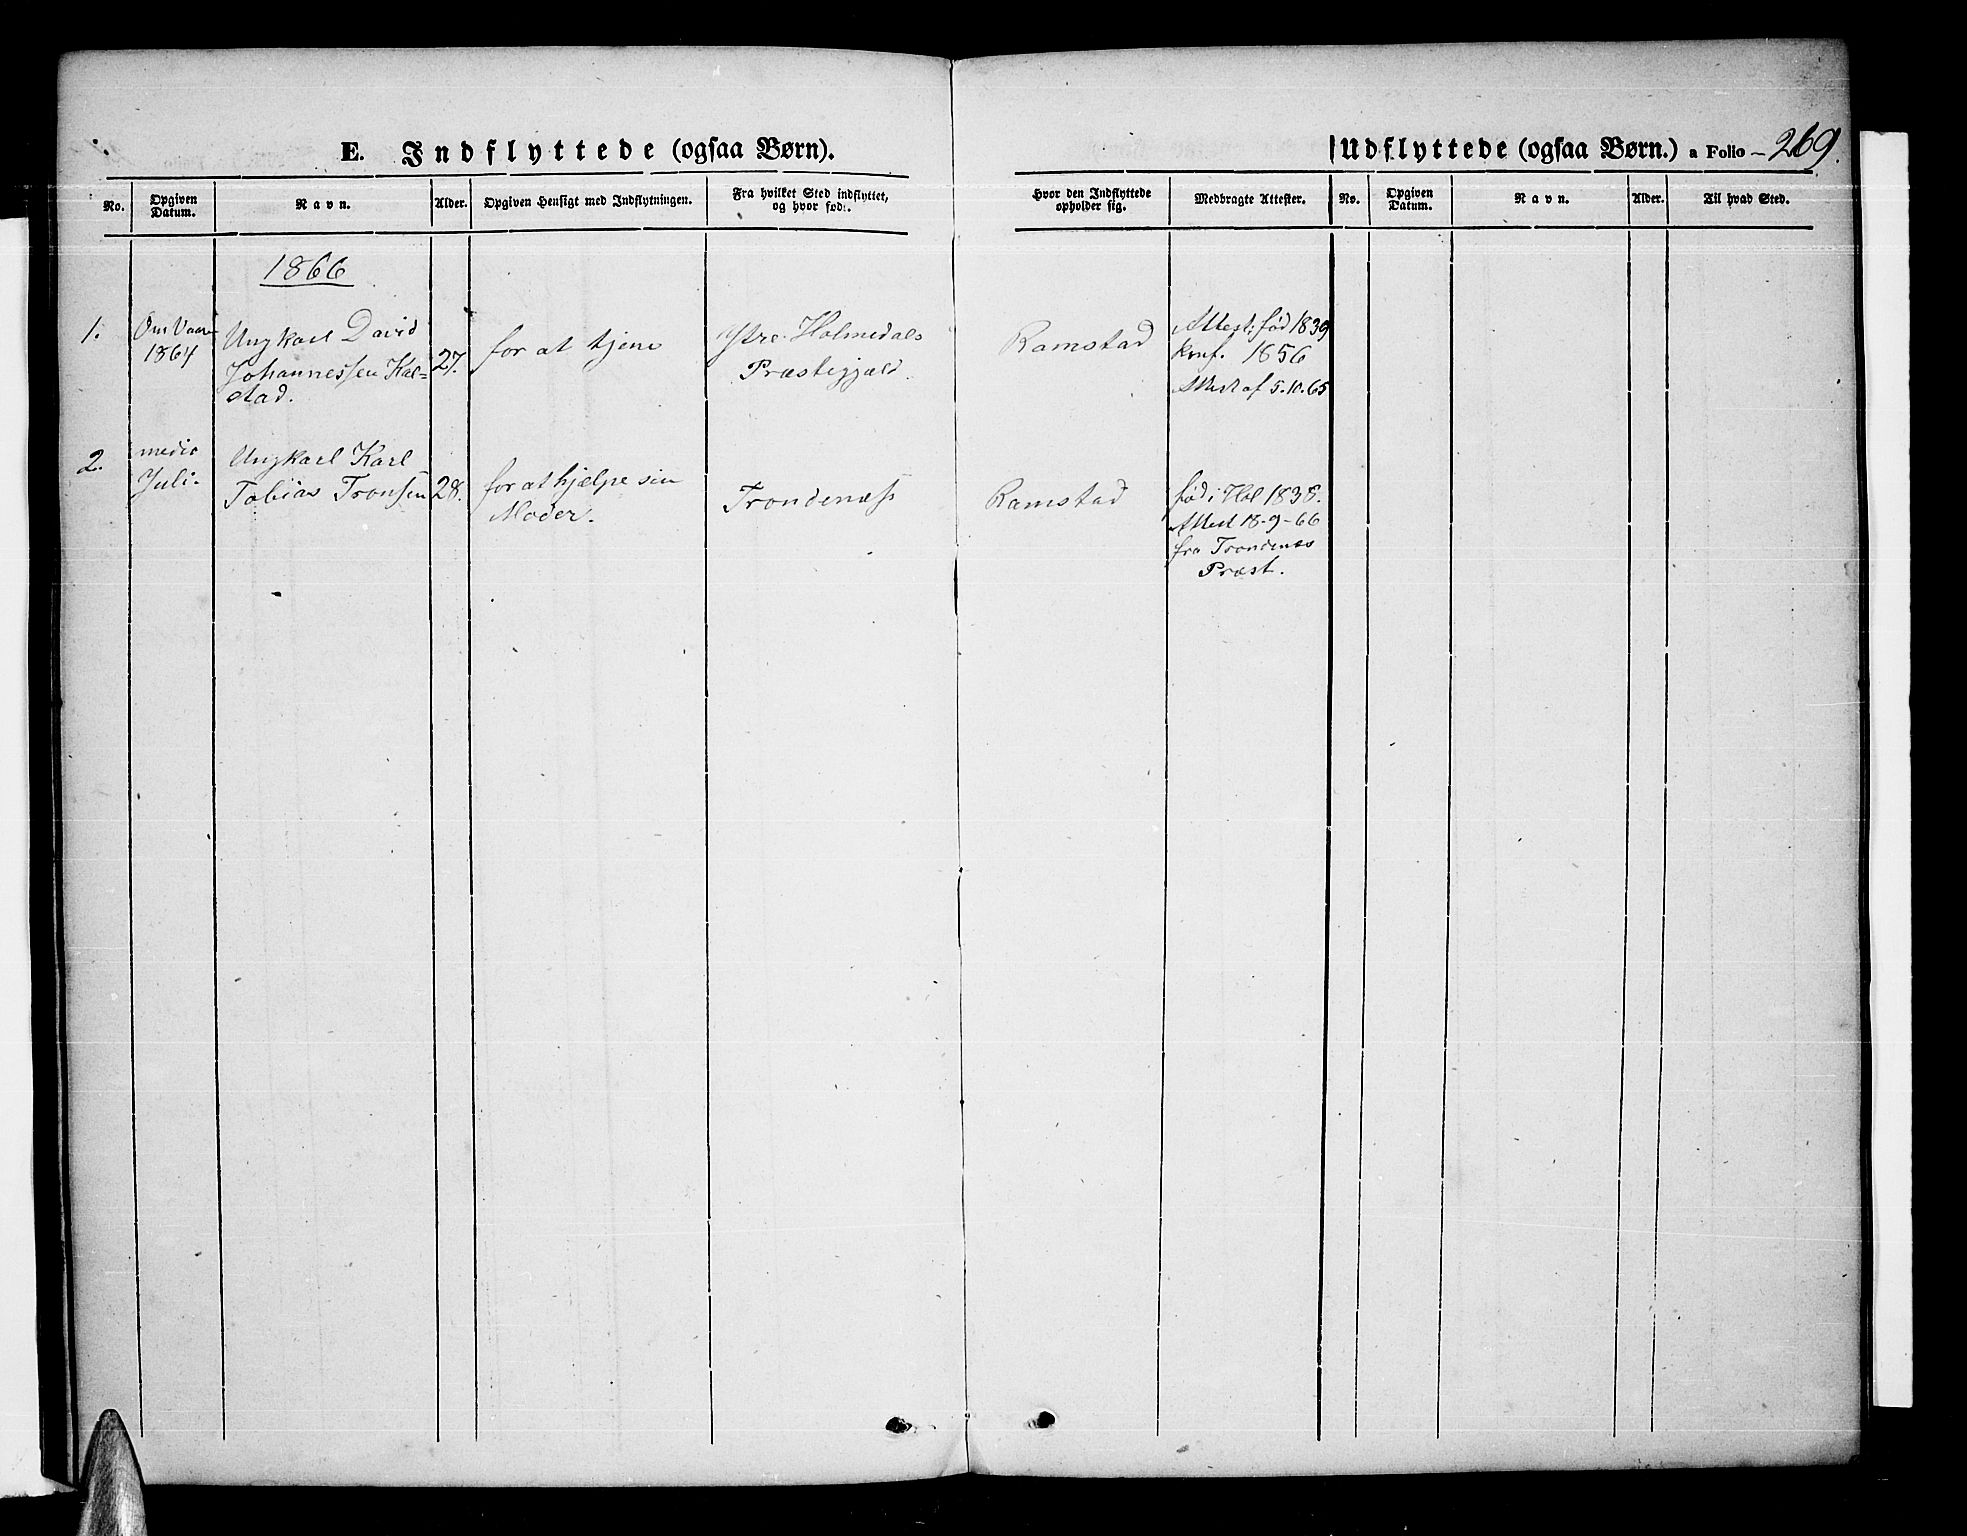 E. Indflyttede (ogsaa Børn).
Udflyttede (ogsaa Børn.) a Folio 269.
No.
Opgiven Datum.
Navn.
Alder.
Opgiven Hensigt med Indflytningen.
Fra hvilket Sted indflyttet, og hvor fød:.
Hvor den Indflyttede opholder sig.
Medbragte Attester.
No.
Opgiven Datum.
Navn.
Alder.
Til hvad Sted.
1866
1.
Om Vaaren
1864
Ungkarl David
Johannessen Kal-
stad.
27.
for at tjene
Ytre Holmedals
Præstegjæld.
Ramstad
Attest: fød 1839
konf. 1856
Attest af 5.10.65
2.
medio
Juli.
Ungkarl Karl
Tobias Tronsen
28.
for at hjælpe sin
Moder.
Trondenæss
Ramstad
fød i Hol 1838.
Attest 18-9-66
fra Trondenæs
Præst.